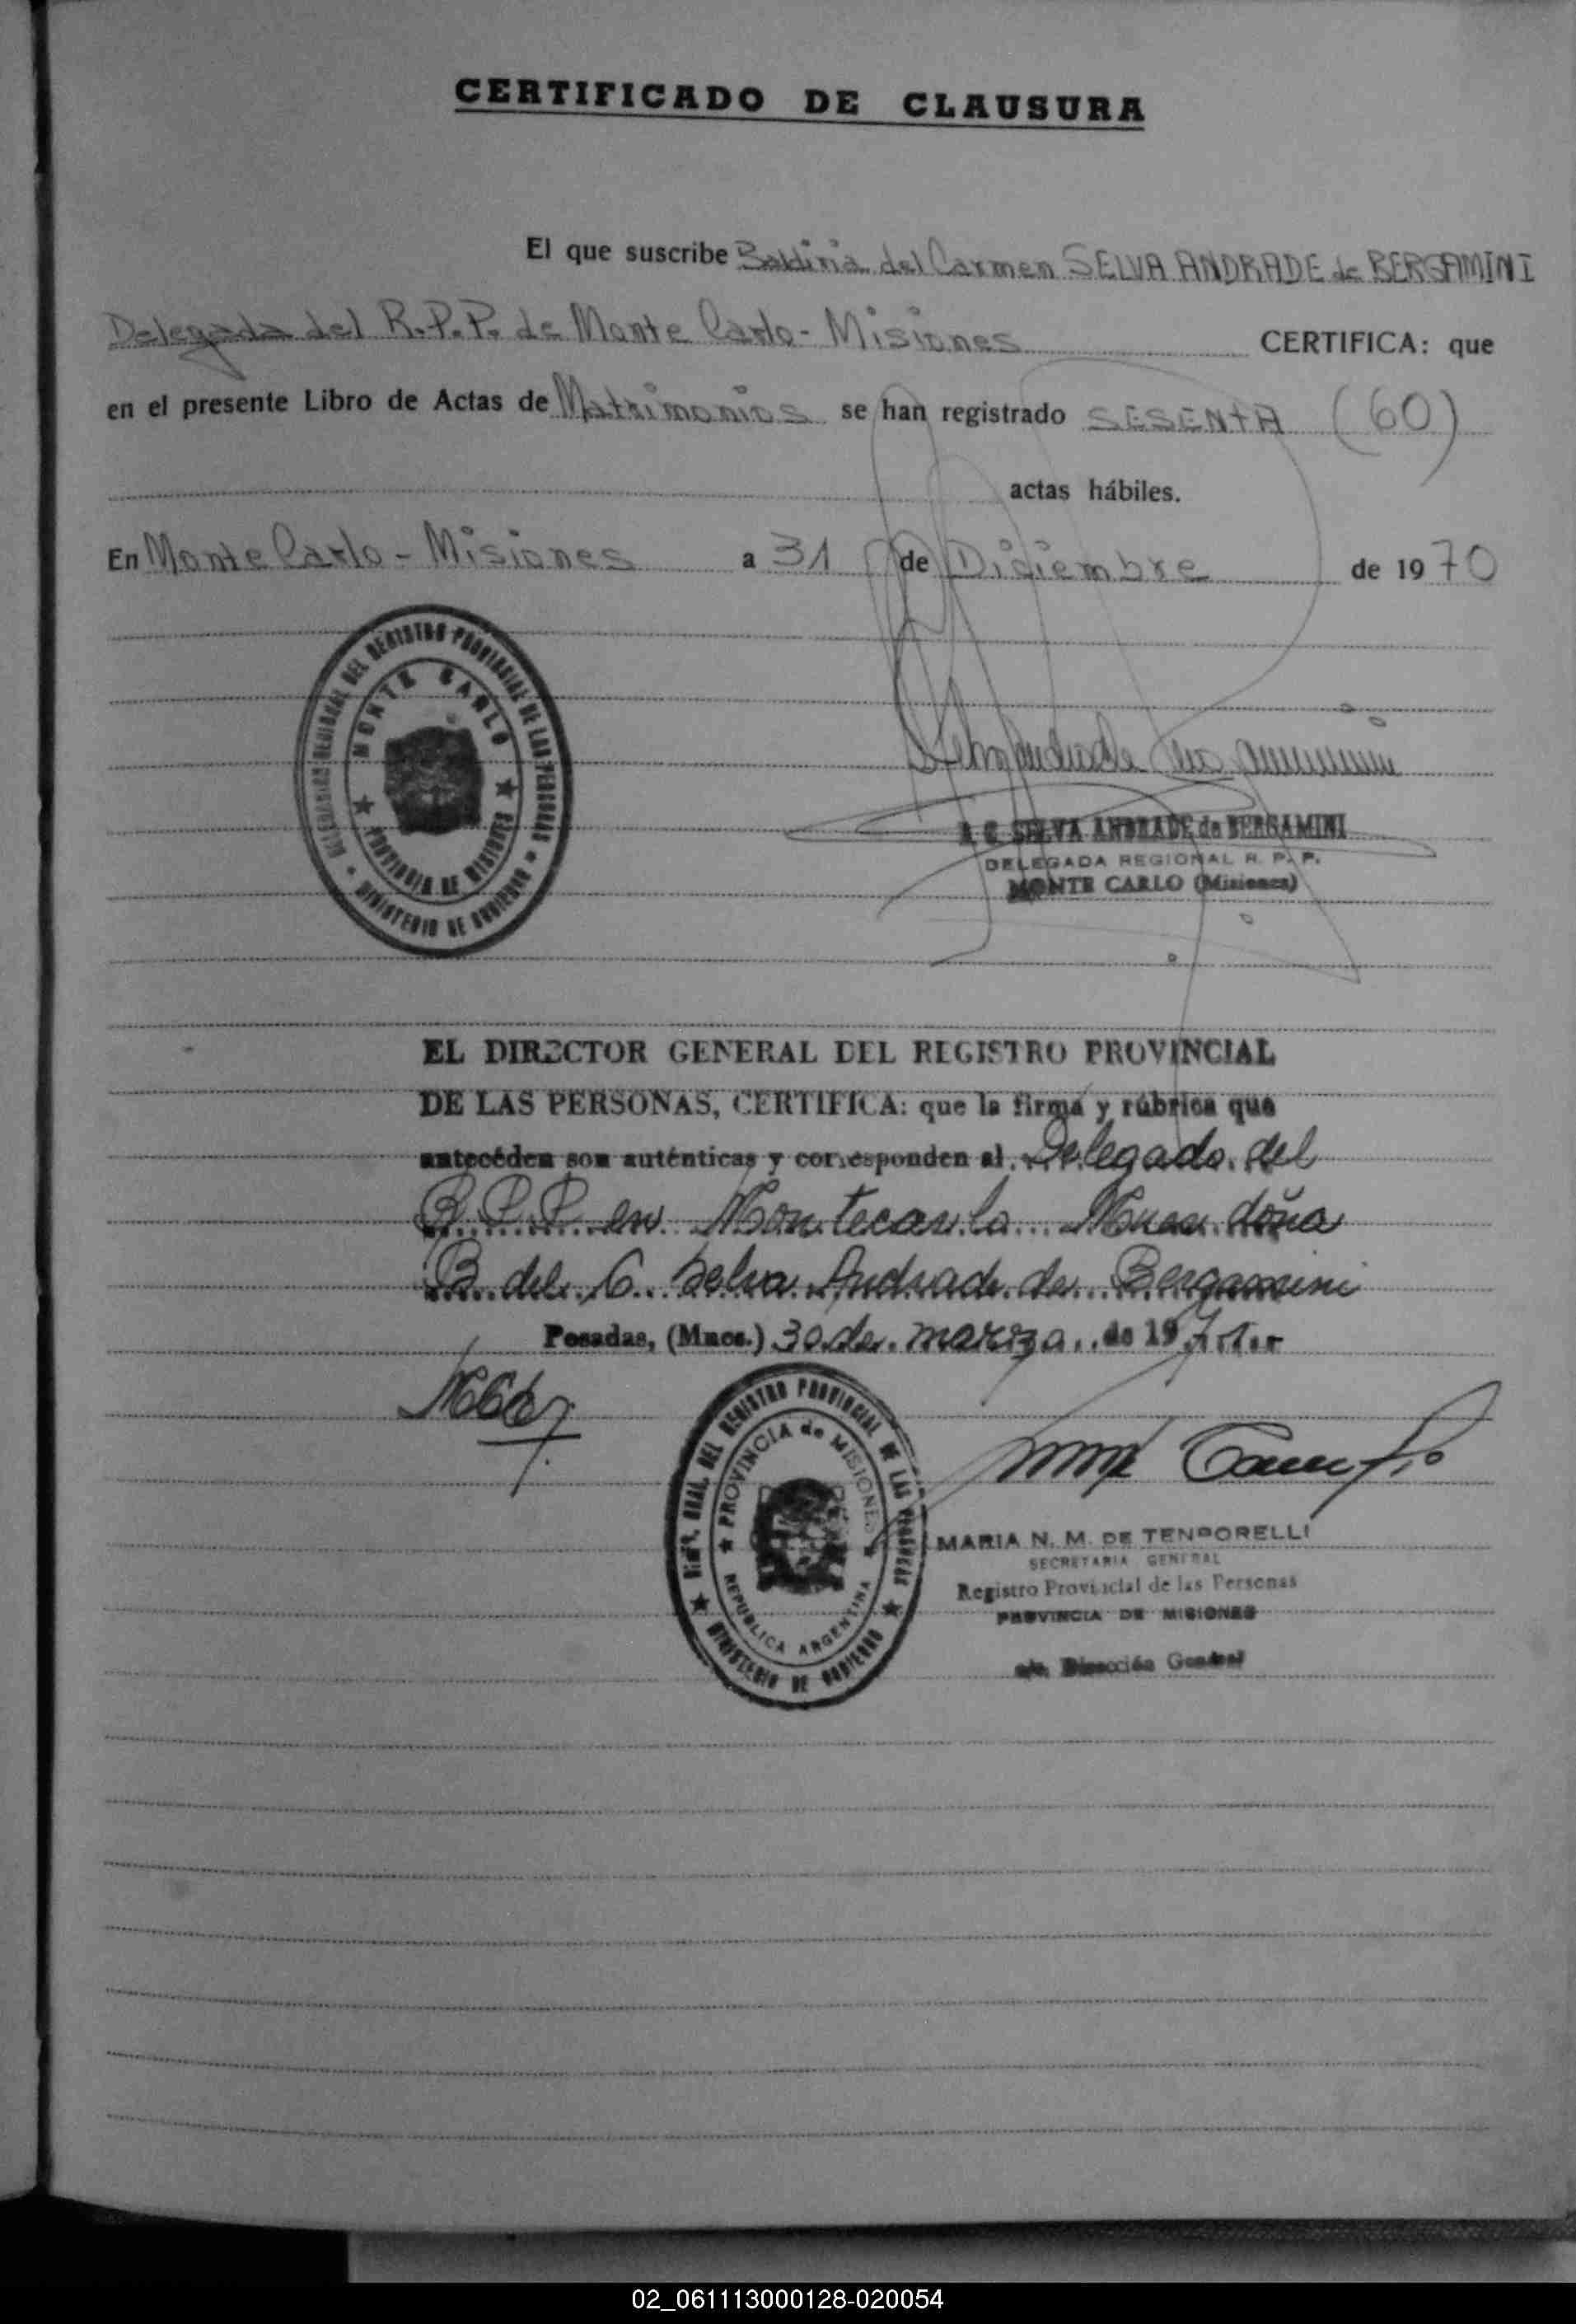 CERTIFICADO DE CLAUSURA
El que suscribe Baldiria del Carmen SELVA ANDRADE de BERGAMINI
Delegada del R.P.P. de Monte Carlo - Misiones CERTIFICA: que
en el presente Libro de Actas de Matrimonios se han registrado SESENTA (60)
actas hábiles.
En Monte Carlo - Misiones a 31 de Diciembre de 1970
DELEGACION REGIONAL DEL REGISTRO PROVINCIAL DE LAS PERSONAS
MONTE CARLO
PROVINCIA DE MISIONES
MINISTERIO DE GOBIERNO
SELVA ANDRADE de BERGAMINI
DELEGADA REGIONAL R. P. P.
MONTE CARLO (Misiones)
EL DIRECTOR GENERAL DEL REGISTRO PROVINCIAL
DE LAS PERSONAS, CERTIFICA: que la firma y rúbrica que
anteceden son auténticas y corresponden al Delegado del
R.P.P. en Montecarlo Mnes. doña
B. del C. Selva Andrade de Bergamini
Posadas, (Mnes.) 30 de marzo de 1971
DIREC. GRAL. DEL REGISTRO PROVINCIAL DE LAS PERSONAS
PROVINCIA de MISIONES
REPUBLICA ARGENTINA
MINISTERIO DE GOBIERNO
MARIA N. M. DE TEMPORELLI
SECRETARIA GENERAL
Registro Provincial de las Personas
PROVINCIA DE MISIONES
a/c. Dirección General
02_061113000128-020054